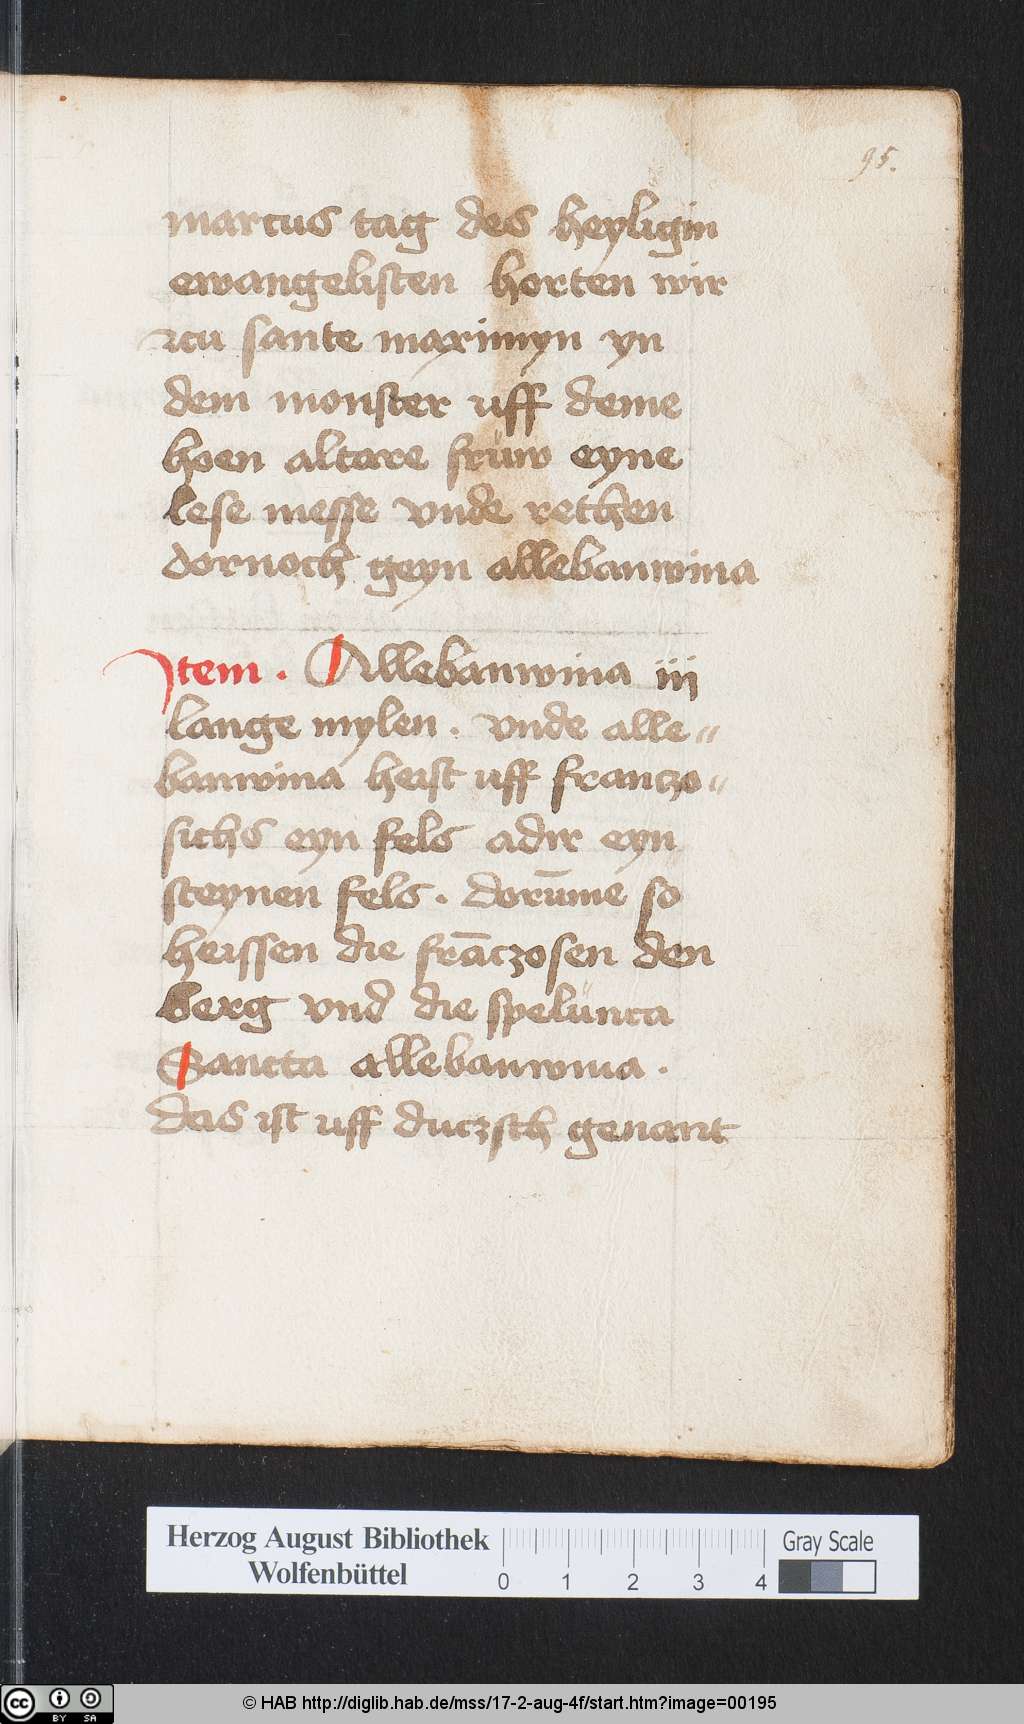 95.
marcus tag des heyligin
ewangelisten horten wir
zcu sante maximyn yn
dem monster uff deme
hoen altare früw eyne
lese messe vnde rethen
dornoch geyn allebanwina
Item . Allebanwina iij
lange mylen . vnde alle〃
banwina heist uff frantzo〃
sichs eyn fels adir eyn
steynen fels . dorūme so
heissen die frāczosen den
berg vnd die spelünca
Sancta allebanwina .
das ist uff duczsch genant
Herzog August Bibliothek
Wolfenbüttel
0 1 2 3 4
Gray Scale
cc BY SA
© HAB http://diglib.hab.de/mss/17-2-aug-4f/start.htm?image=00195